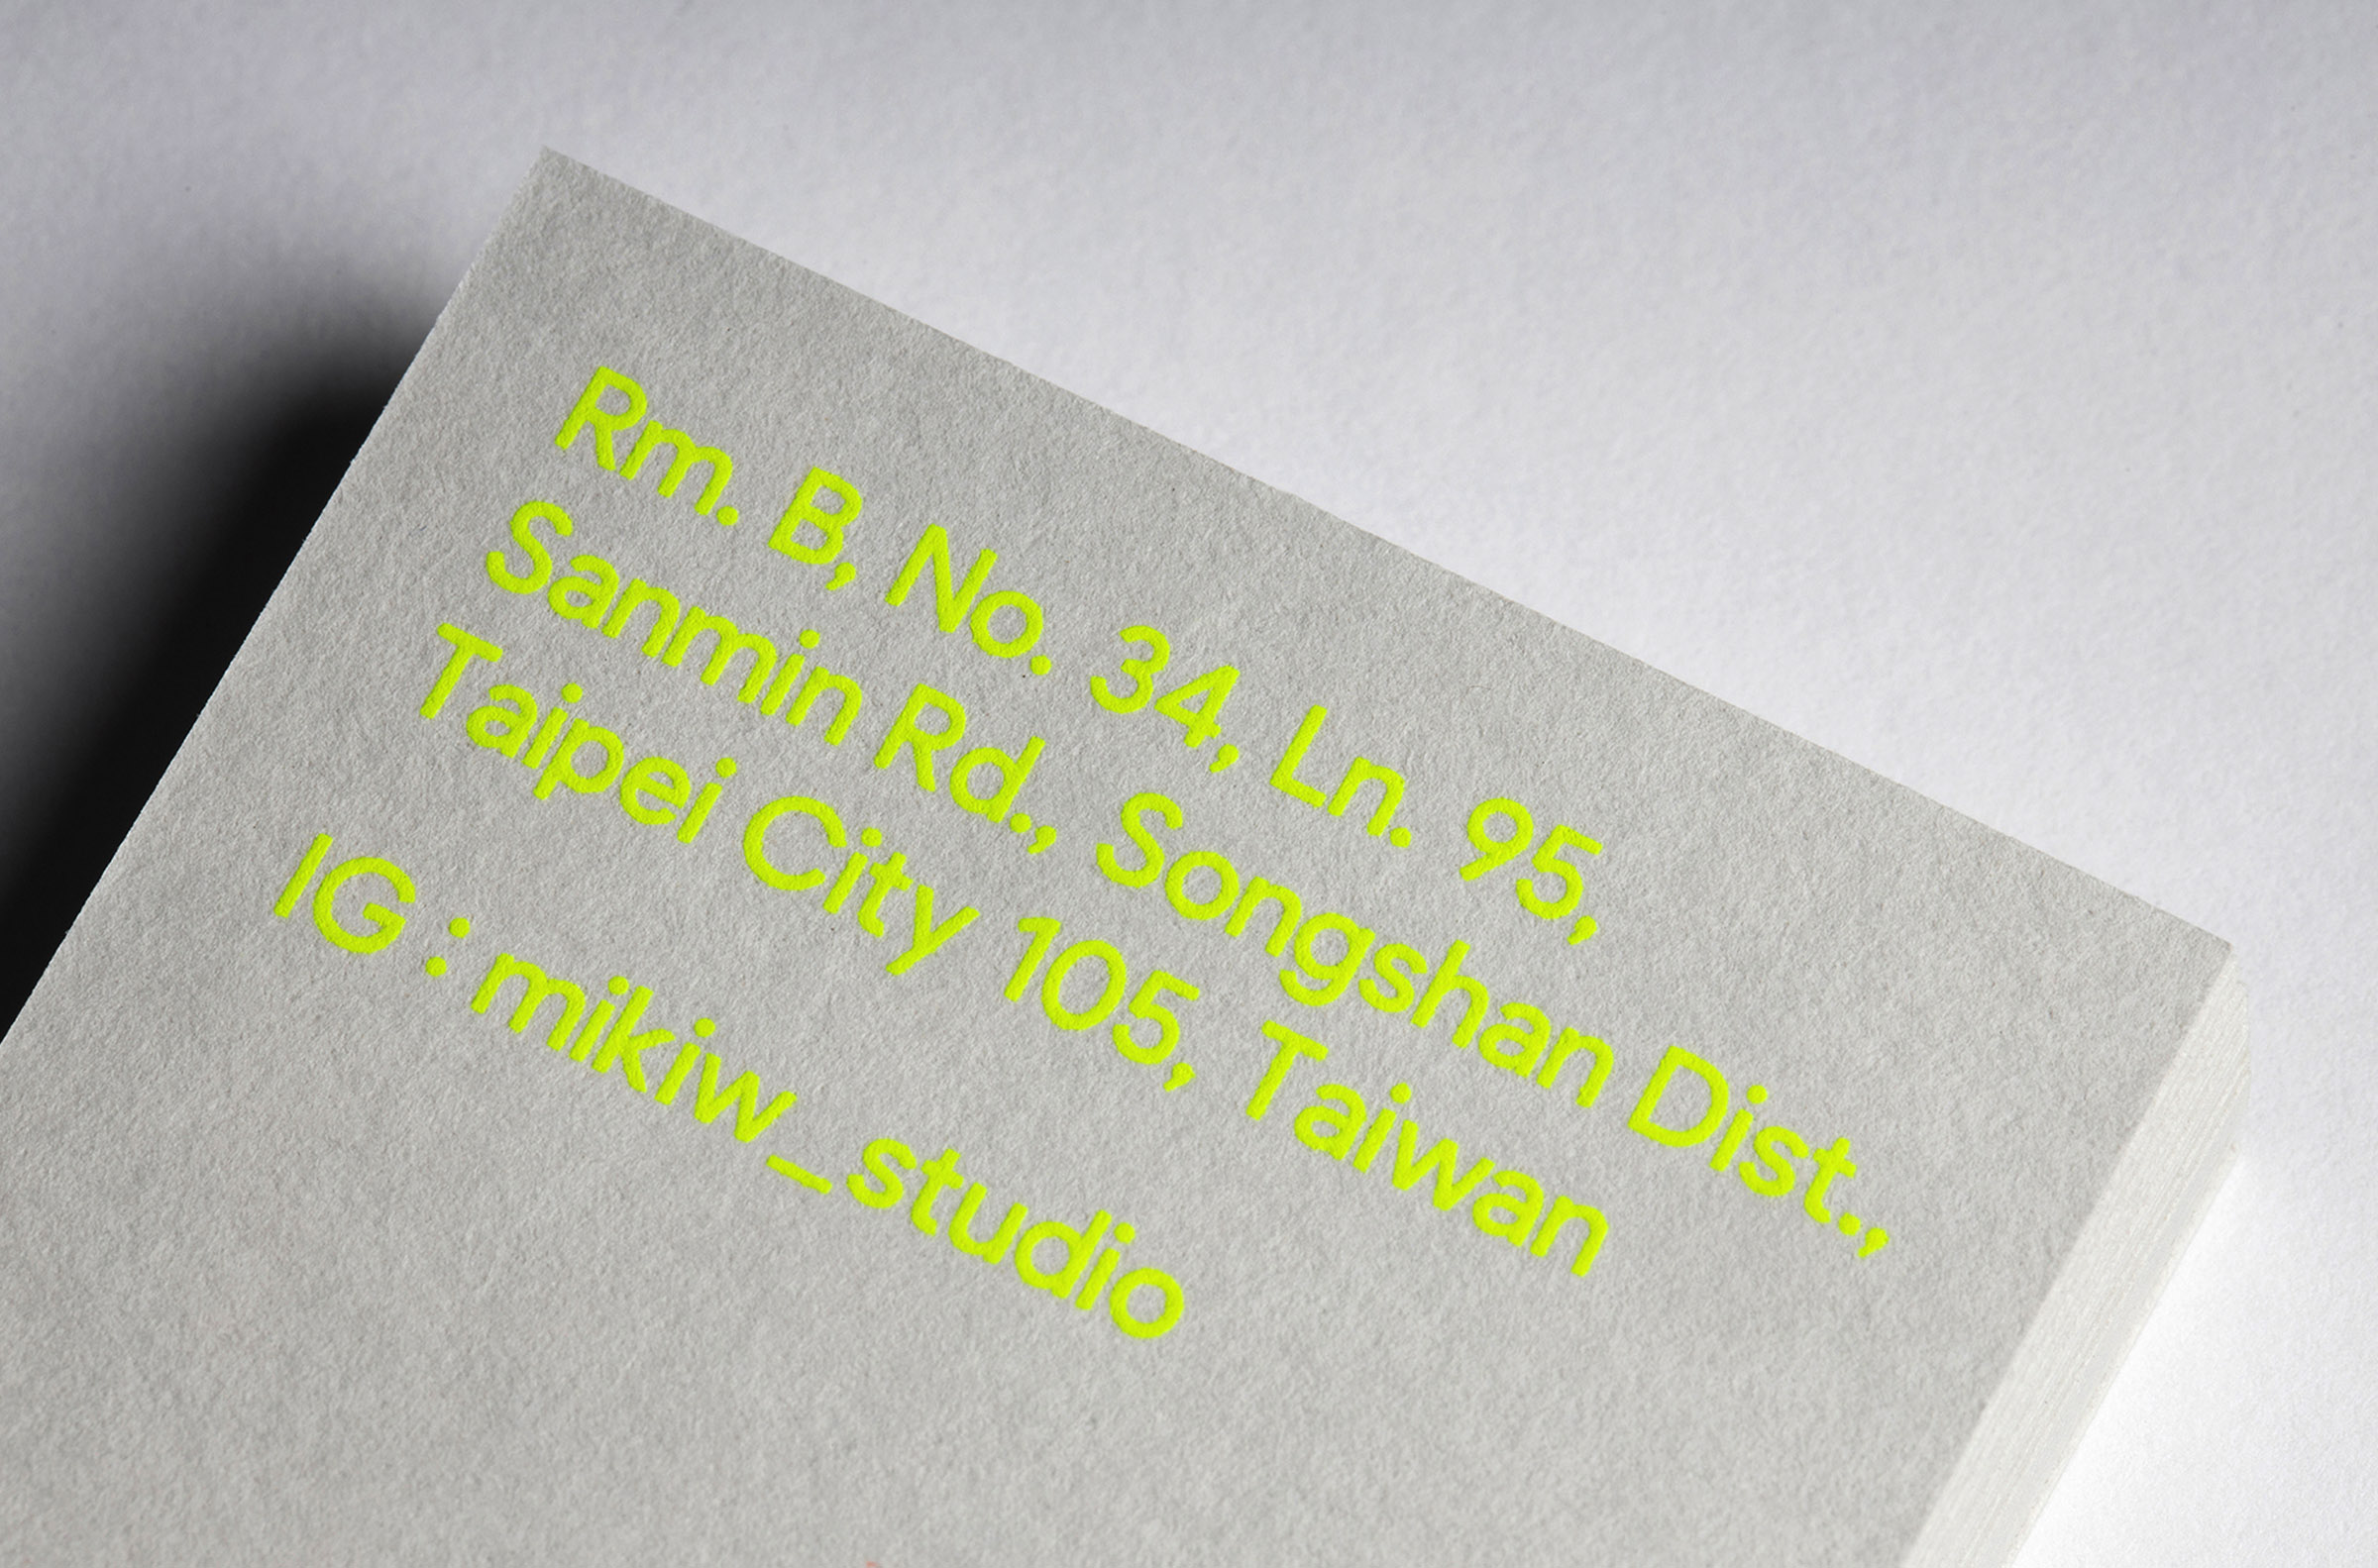 Rm. B, No. 34, Ln. 95,
Sanmin Rd., Songshan Dist.,
Taipei City 105, Taiwan
IG : mikiw_studio